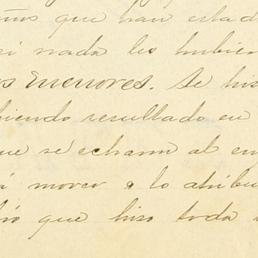 años que han estad
si nada les hubien
os Menores. Se his
biendo resultado en
que se echaron al en
lo atribu
que hiso toda